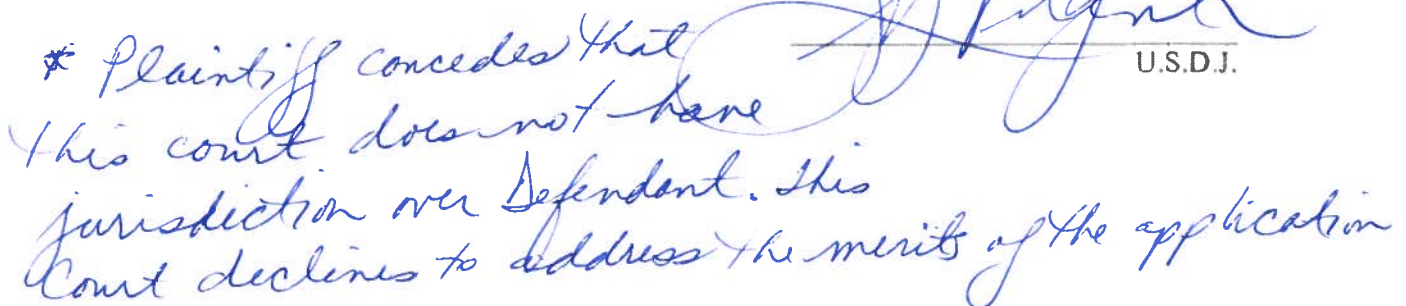 U.S.D.J.
* Plaintiff concedes that
this court does not have
jurisdiction over Defendant. This
Court declines to address the merits of the application